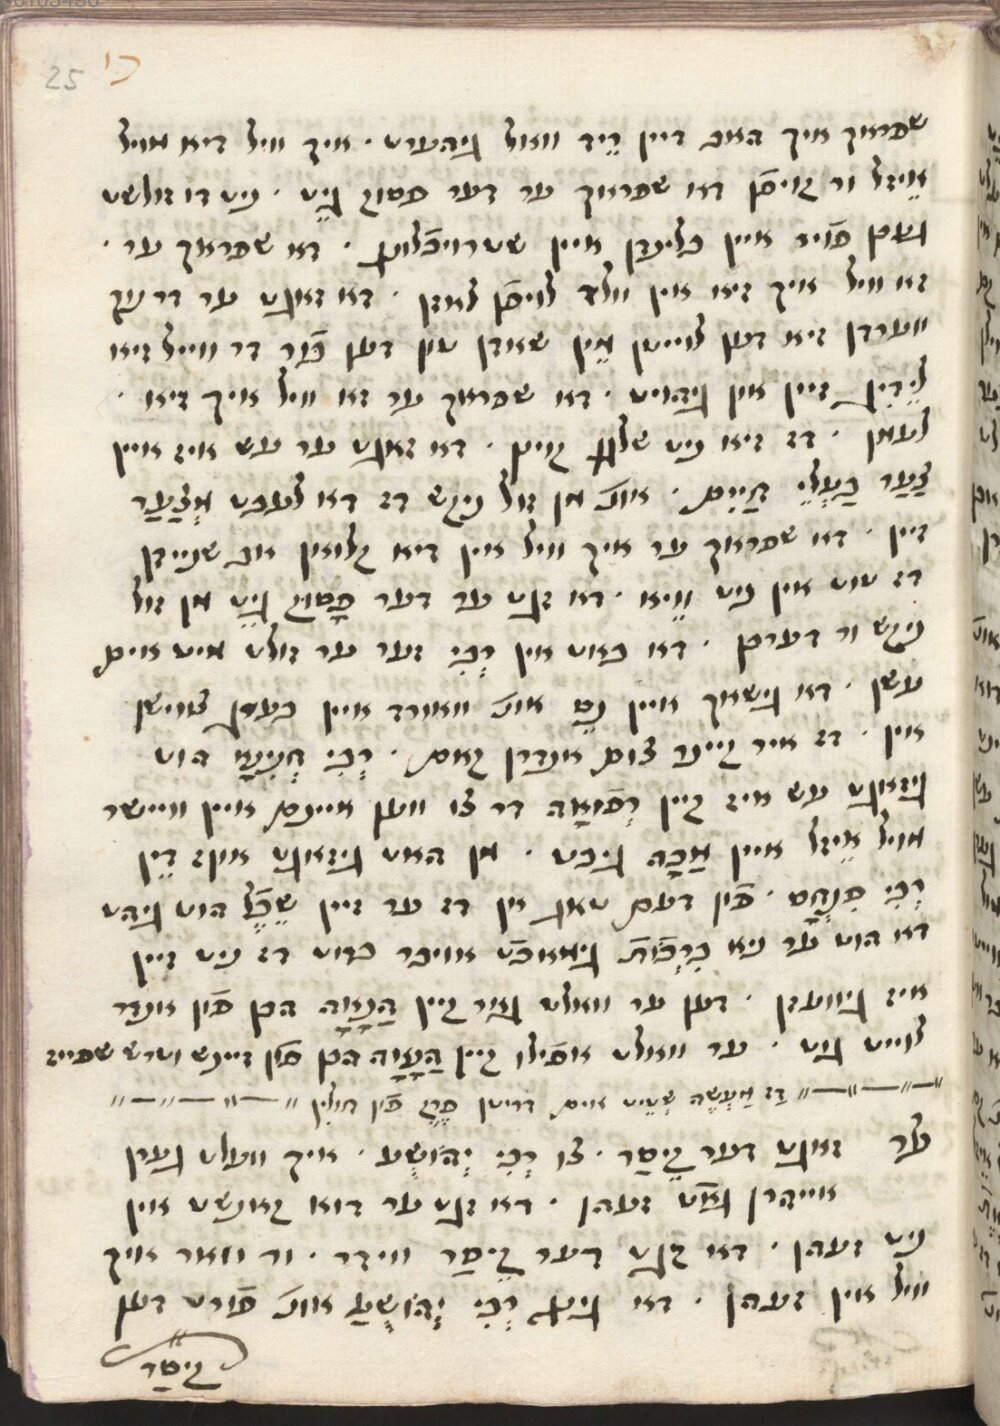 25 כו
שפראך איך האב דיין רֵיד וואול גיהערט · איך וויל דיא מויל
אֵיזל ור קויפֿן דא שפראך ער דער פסוק גֵיט · ניט דו זולשט
געבן פֿויר איין בלינדן איין שטרויכֿלונג · דא שפראך ער ·
זא וויל איך זיא אין וולד לויפֿן לאזן · דא זאגט ער דר נוך
ווערדן זיא דען לוייטן אֵין שאדן טון דען פֿור דר ווייל זיא
לֵידִיג זיין אין גיהויט · דא שפראך ער זא וויל איך זיא ·
לעמן · דז זיא ניט שלאגן קוינן · דא זאגט ער עש איז איין
צַעַר בַּעֲלֵי חַיִים · אונ מן זול ניקש דז דא לעבט מְצַעֵר
זיין · דא שפראך ער איך וויל אין דיא קלואן אב שניידן
דז טוט אין ניט וֵויא · דא זגט ער דער פָּסוק גֵיט מן זול
ניקש ור דערבן · דא באט אין רַבִּי זער ער זולט מיט אים
עשן · דא גישאך איין נֵס אונ ווארד איין בערג צווישן
אין · דז איר קיינר צום אנדרן קאם · רַבִּי חֲנִינָא הוט
גיזאגט עש איז קיין רְפוּאָה דר צו ווען איינם איין וויישר
מויל אֵיזל איין מַכָּה גיבט · מן האט גיזאגט אונז דֵין
רַבִּי פִּנְחָס · פֿון דעם טאג אן דז ער זיין שֵׂכֶל הוט גיהט
דא הוט ער ניא בִּרְכּוֹת גימאכֿט איבר ברוט דז ניט זיין
איז גיוועזן · דען ער וואלט גאר קיין הֲנָאָה הבן פֿון אנדר
לוייט גוט · ער וואלט אפֿילו קיין הֲנָאָה הבן פֿון זיינש וטרש שפייז
דז מַעֲשֶׂה שְׁטֵיט אים דריטן פֶּרֶק פֿון חולין
עש זאגט דער קֵיסַר · צו רַבִּי יְהוֹשֻׁעַ · איך וועלט גערן
אייהרן גאָט זעהן · דא זגט ער דוא קאנשט אין
ניט זעהן · דא זגט דער קֵיסַר ווידר · ור וואר איך
וויל אין זעהן · דא גינג רַבִּי יְהוֹשֻׁעַ אונ פֿורט דען
קיסַר